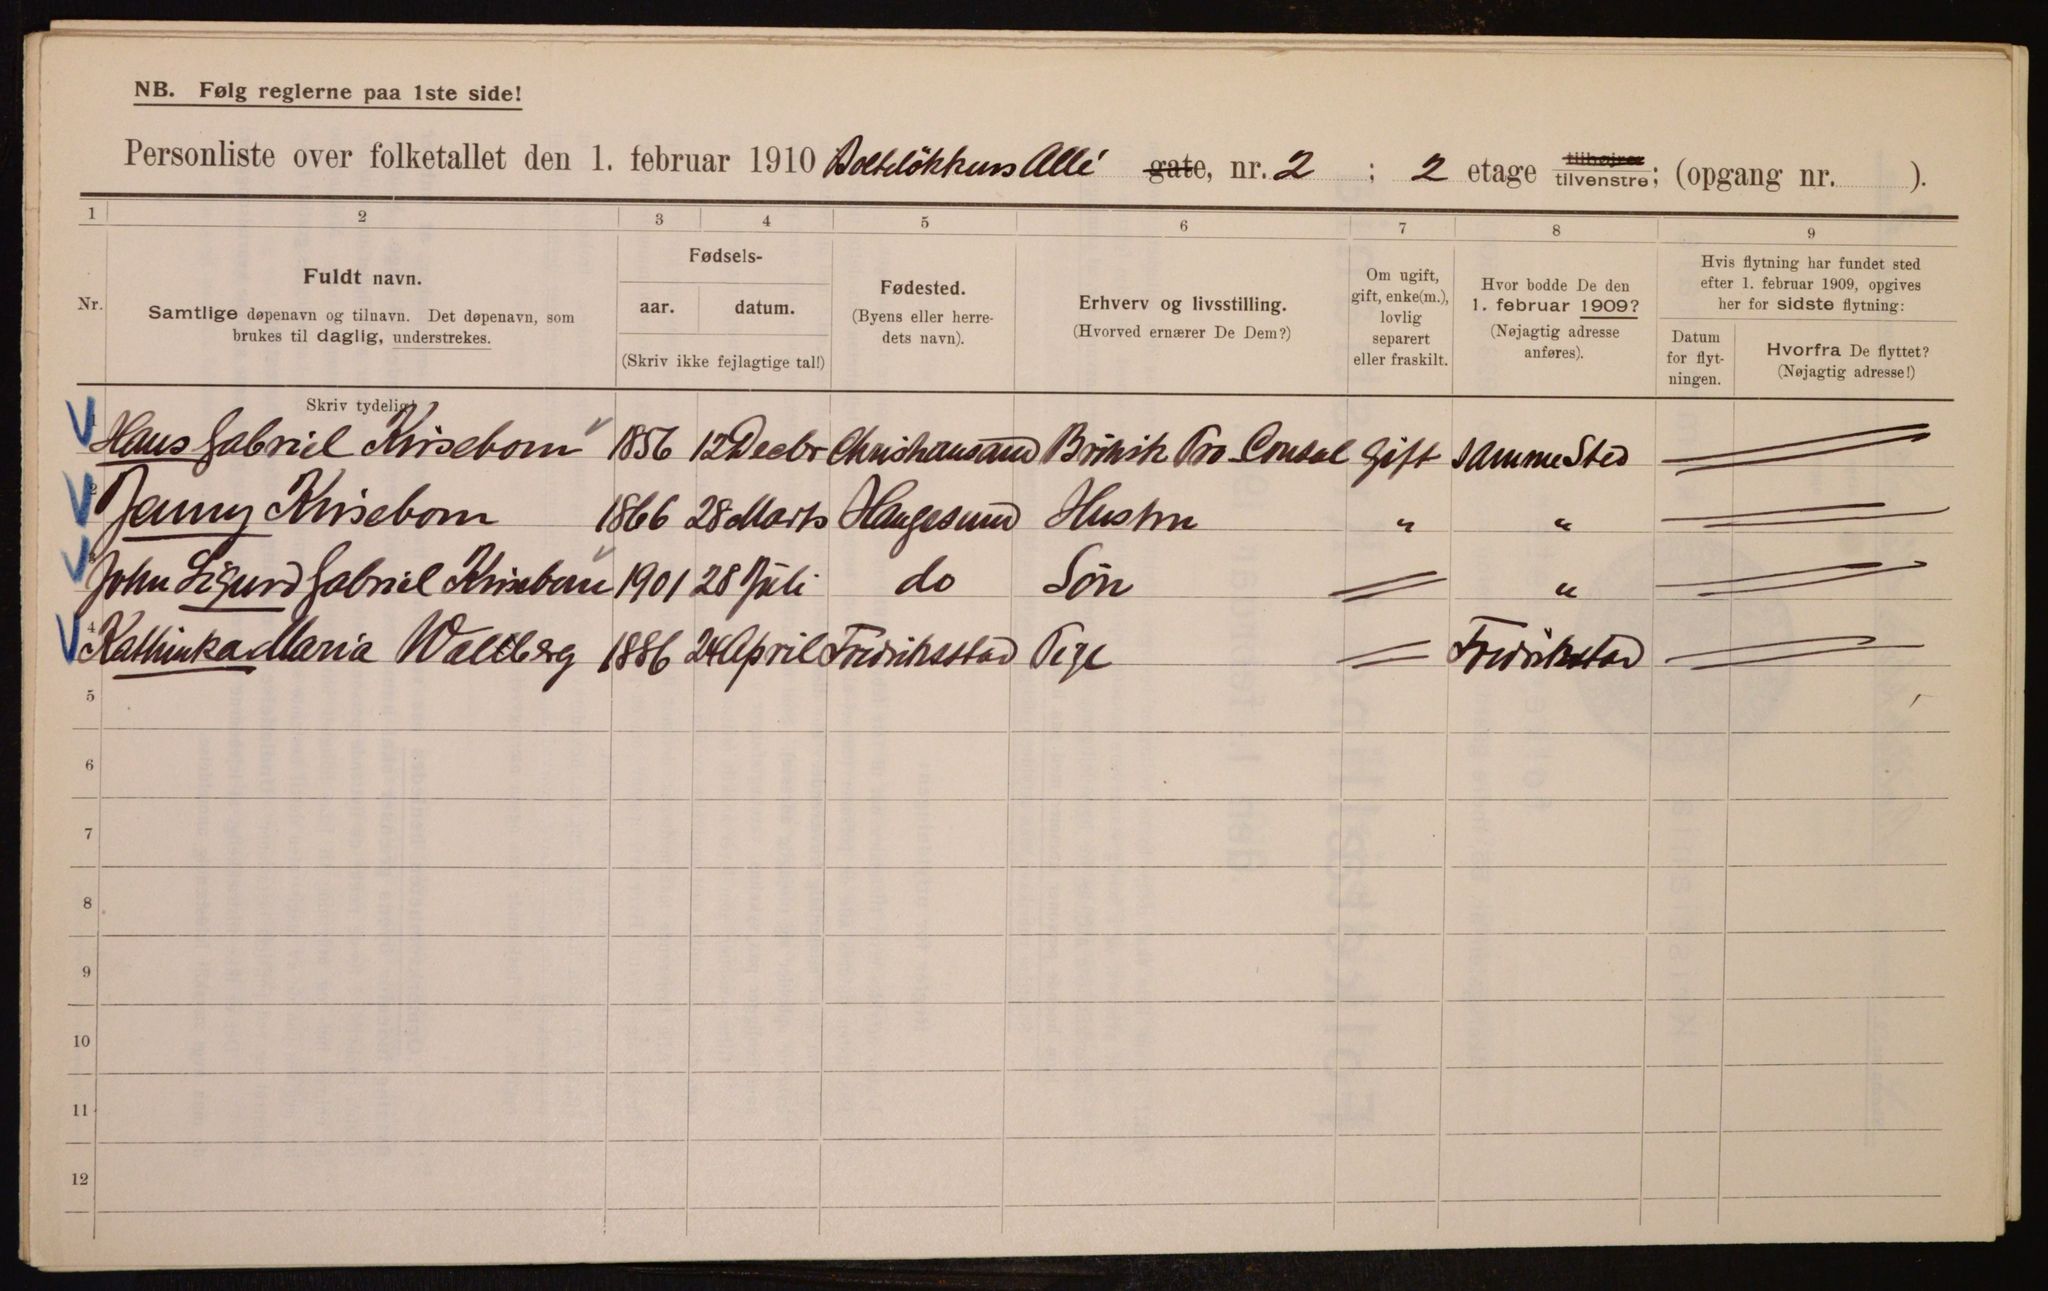 NB. Følg reglerne paa 1ste side!
Personliste over folketallet den 1. februar 1910 Boltelökkens Allé gate, nr. 2 ; 2 etage tilhøjre tilvenstre; (opgang nr. ).
1 2 3 4 5 6 7 8 9
Nr.
Fuldt navn.
Samtlige døpenavn og tilnavn. Det døpenavn, som
brukes til daglig, understrekes.
Fødsels-
aar. datum.
(Skriv ikke fejlagtige tal!)
Fødested.
(Byens eller herre-
dets navn).
Erhverv og livsstilling.
(Hvorved ernærer De Dem?)
Om ugift,
gift, enke(m.),
lovlig
separert
eller fraskilt.
Hvor bodde De den
1. februar 1909?
(Nøjagtig adresse
anføres).
Hvis flytning har fundet sted
efter 1. februar 1909, opgives
her for sidste flytning:
Datum
for flyt-
ningen.
Hvorfra De flyttet?
(Nøjagtig adresse!)
Skriv tydelig!
1 Hans Gabriel Krisebom 1856 12 Decbr Christiansand Britisk Pro Consul Gift samme Sted
2 Jenny Krisebom 1866 28 Marts Haugesund Hustru " "
3 John Sigurd Gabriel Krisebom 1901 28 Juli do Sön "
4 Kathinka Maria Wallberg 1886 24 April Fredriksstad Pige Fredrikstad
5
6
7
8
9
10
11
12